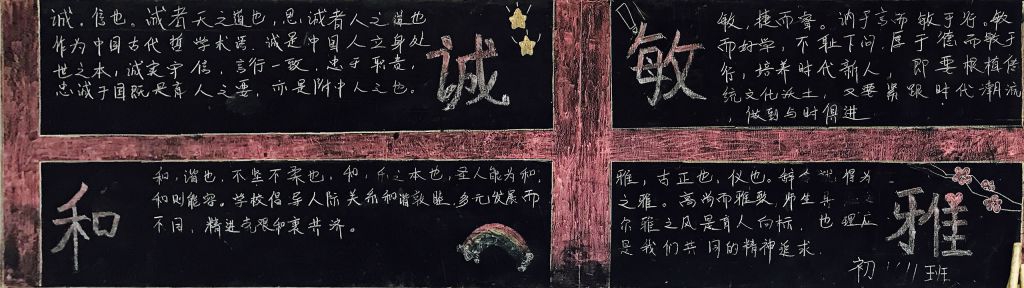 诚，信也。诚者天之道也，思诚者人之道也
作为中国古代哲学术语，诚是中国人立身处
世之本，诚实守信，言行一致，忠于职责，
忠诚于国既是育人之要，亦是附中人之也。
诚
敏
敏，捷而睿。讷于言而敏于行。敏
而好学，不耻下问，厚于德而敏于
行，培养时代新人，即要根植传
统文化沃土，又要紧跟时代潮流
，做到与时俱进
和
和，谐也，不坚不柔也，和，乐之本也，圣人能为和，
和则能容。学校倡导人际关系和谐敦睦，多元发展而
不同，精进克艰和衷共济。
雅，古正也，仪也。
之雅。高尚而雅致，师生具
尔雅之风是育人向标，也理应
是我们共同的精神追求.
雅
初 11 班